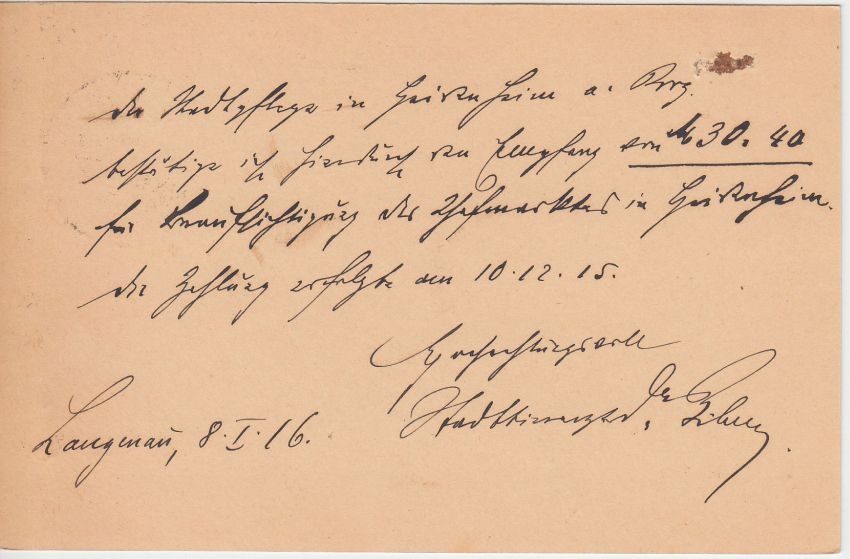 der Stadtpflege in Heidenheim a. Brz.
bestätige ich hierdurch den Empfang von M 30. 40
für Beaufsichtigung des Schafmarktes in Heidenheim.
die Zahlung erfolgte am 10.12.15.
Hochachtungsvoll
Stadttierarzt Dr.
Langenau, 8.I.16.